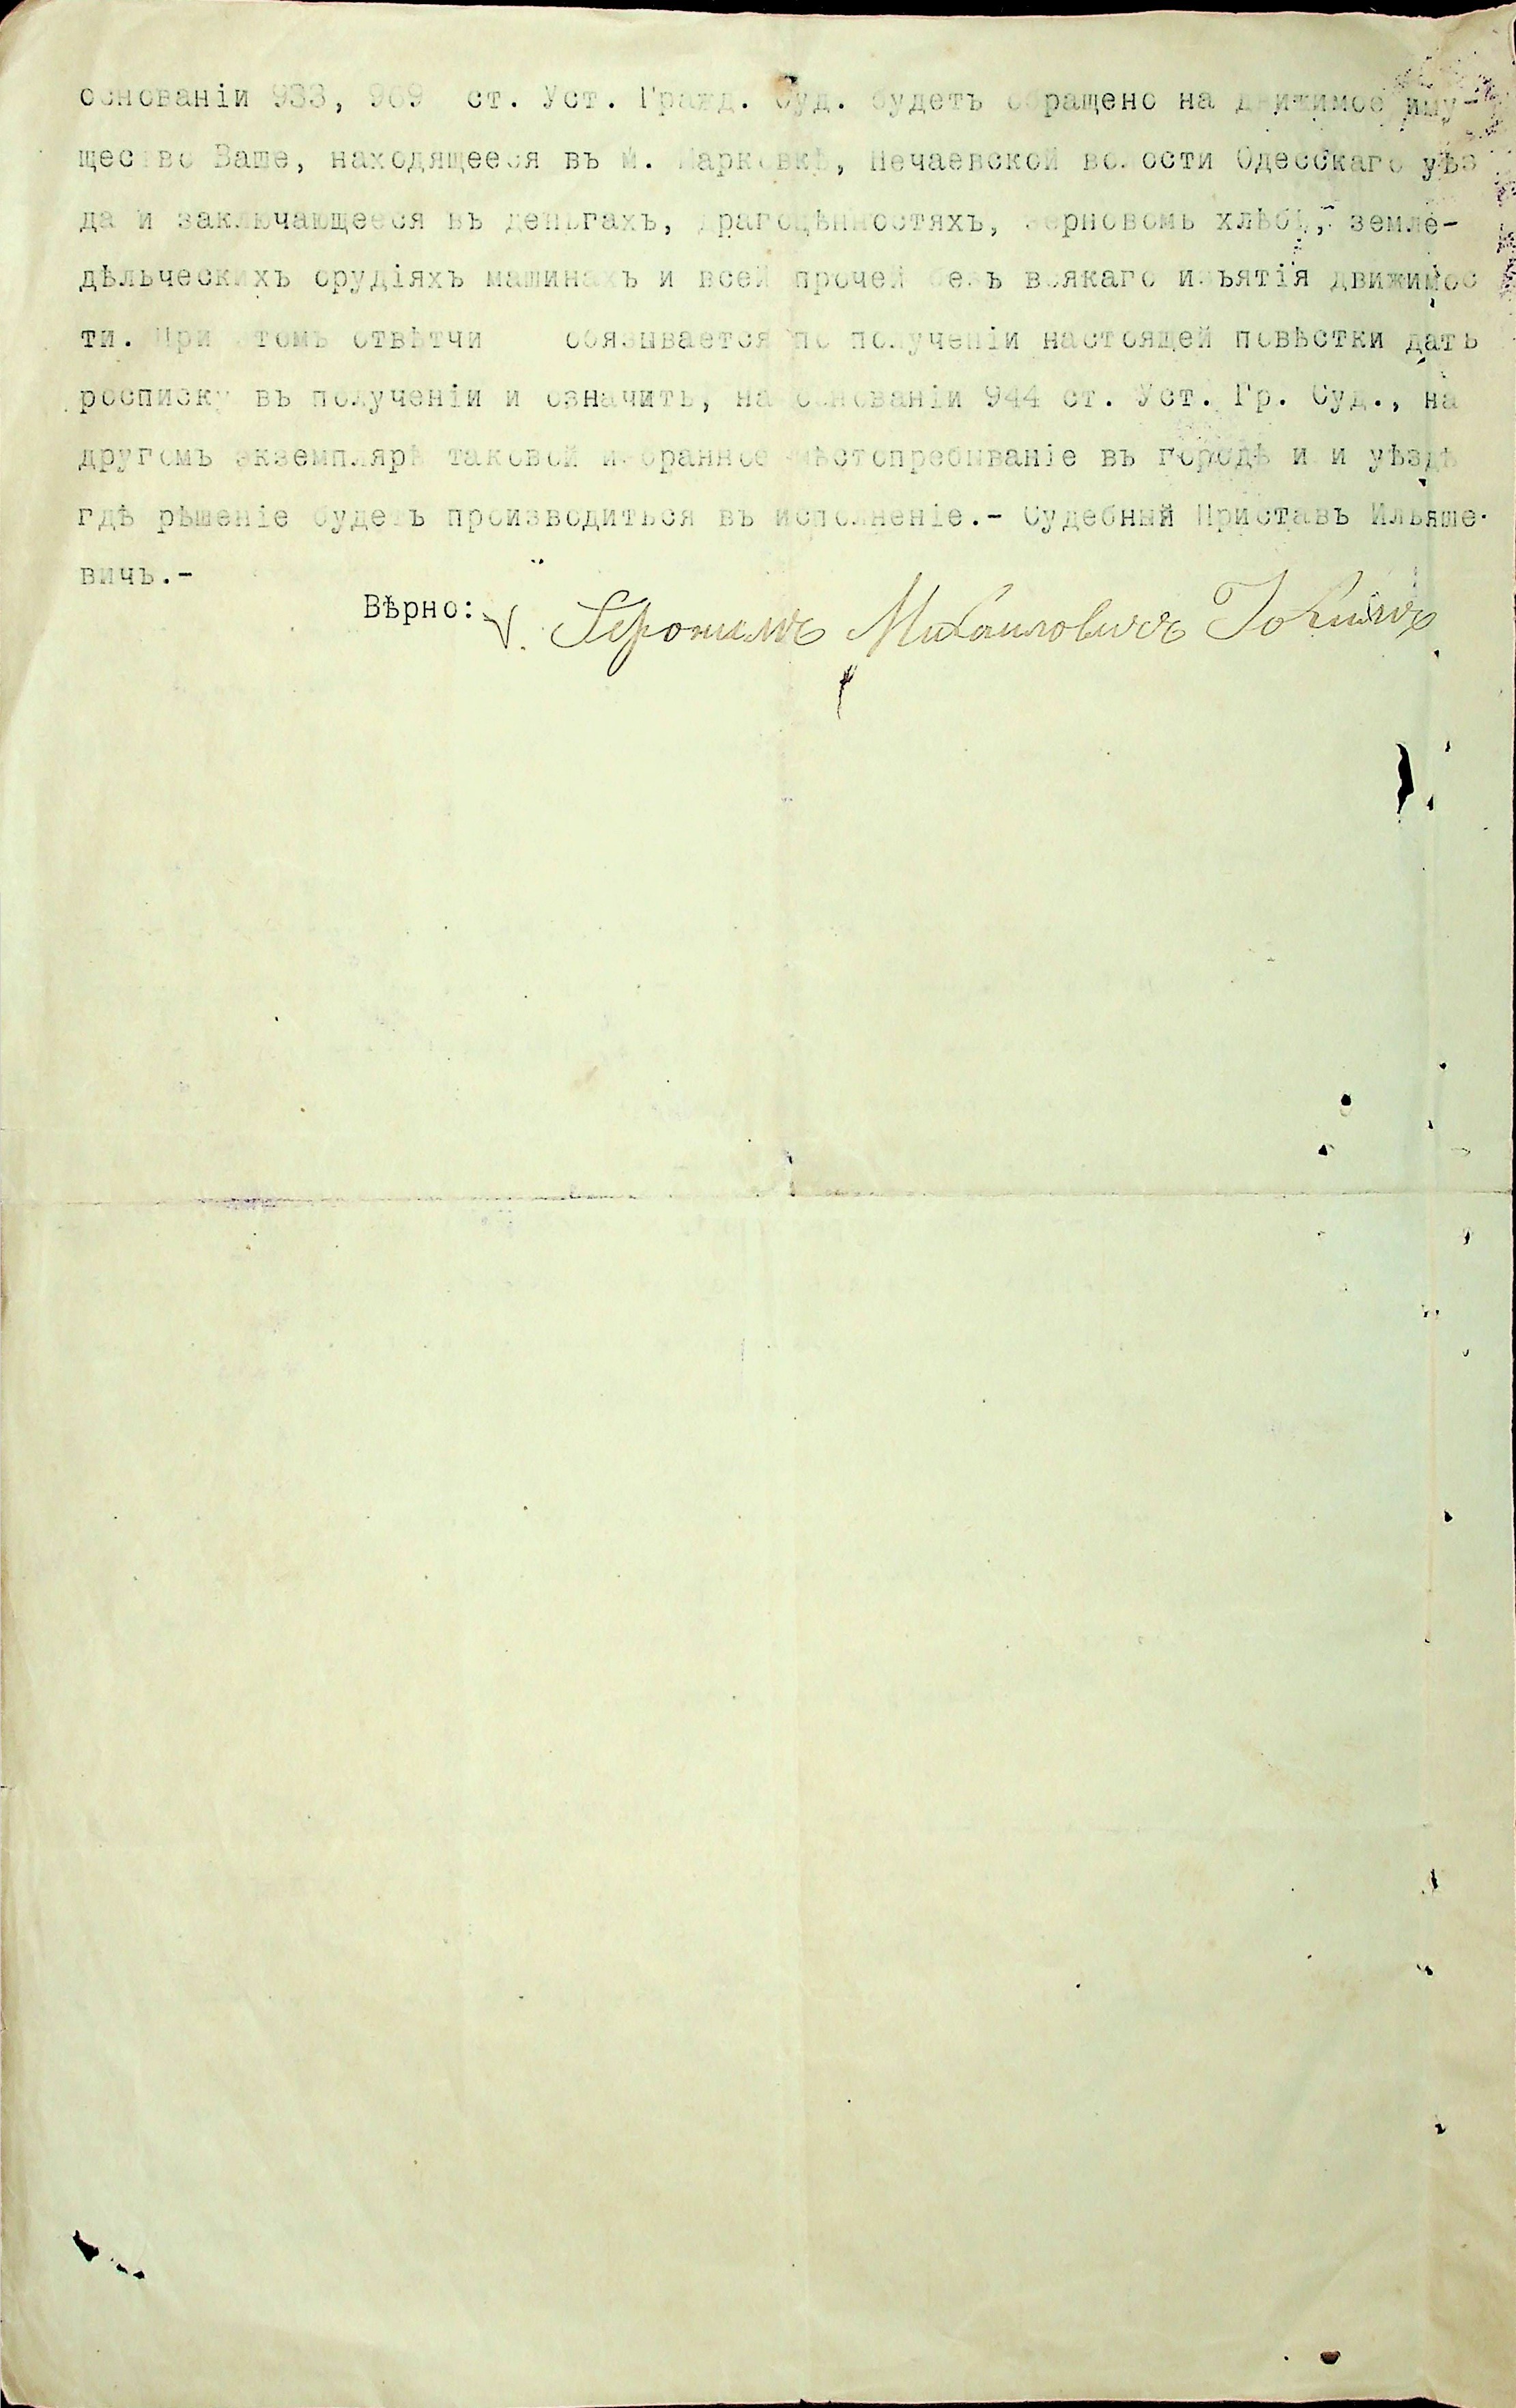 основаніи 933, 969 ст. Уст. Гражд. Суд. будетъ обращено на движимое иму-
щество Ваше, находящееся въ м. Марковкѣ, Нечаевской волости Одесскаго уѣз
да и заключающееся въ деньгахъ, драгоцѣнностяхъ, зерновомъ хлѣбѣ, земле-
дѣльческихъ орудіяхъ машинахъ и всей прочей безъ всякаго изъятія движимос
ти. При этомъ отвѣтчи обязывается по полученіи настоящей повѣстки дать
росписку въ полученіи и означить, на основаніи 944 ст. Уст. Гр. Суд., на
другомъ экземплярѣ таковой избранное мѣстопребываніе въ городѣ или уѣздѣ
гдѣ рѣшеніе будетъ производиться въ исполненіе.- Судебный Приставъ Ильяше-
вичъ.-
Вѣрно: Михаиловичъ